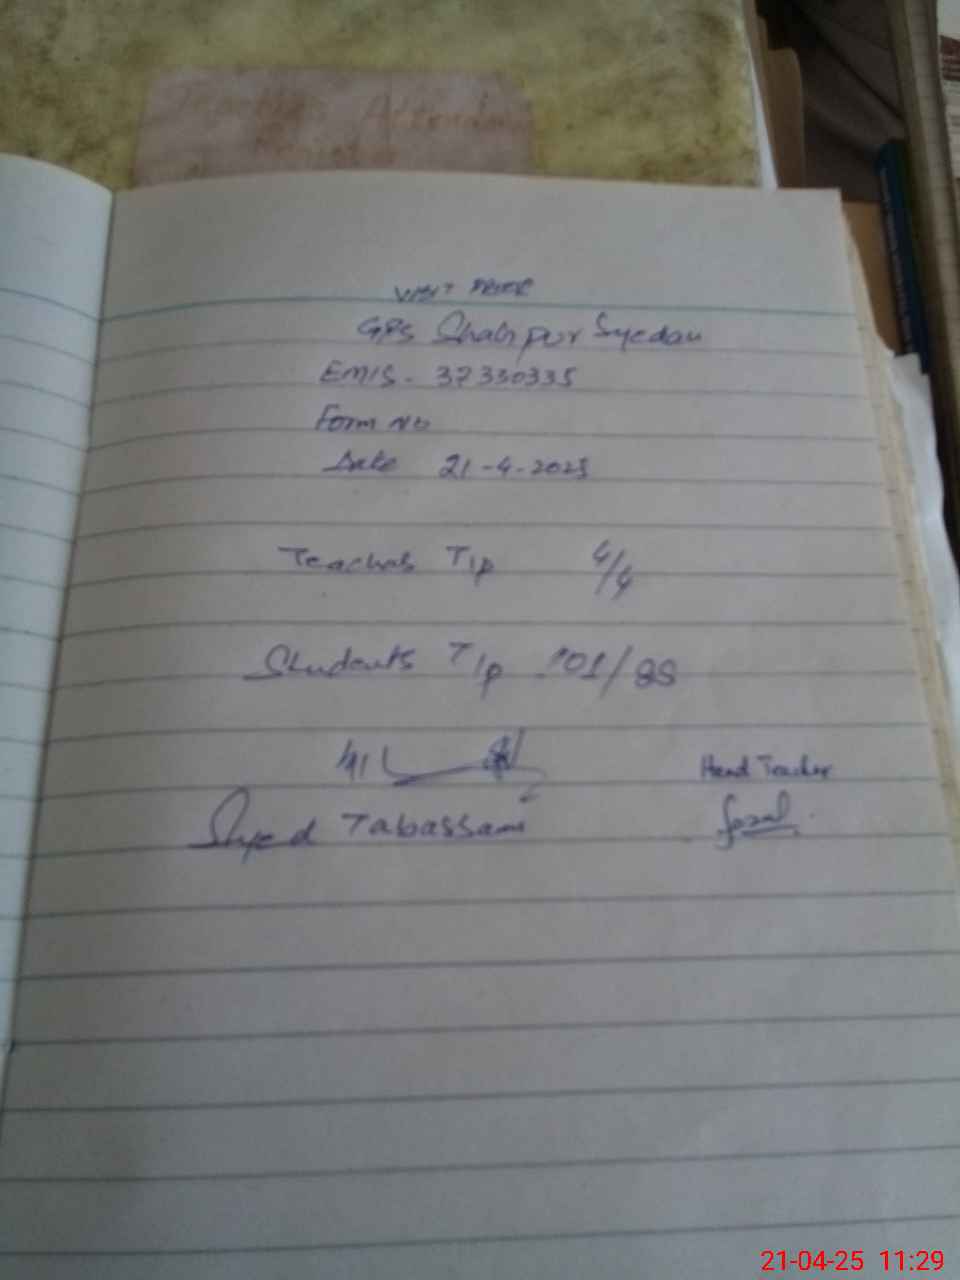 Teacher Attenda
Register
Visit
GPS Shahpur Syedan
EMIS - 37330335
Form No
Date 21-4-2025
Teachers T/p 4/4
Students T/p 101/88
Syed Tabassam
Head Teacher
21-04-25 11:29